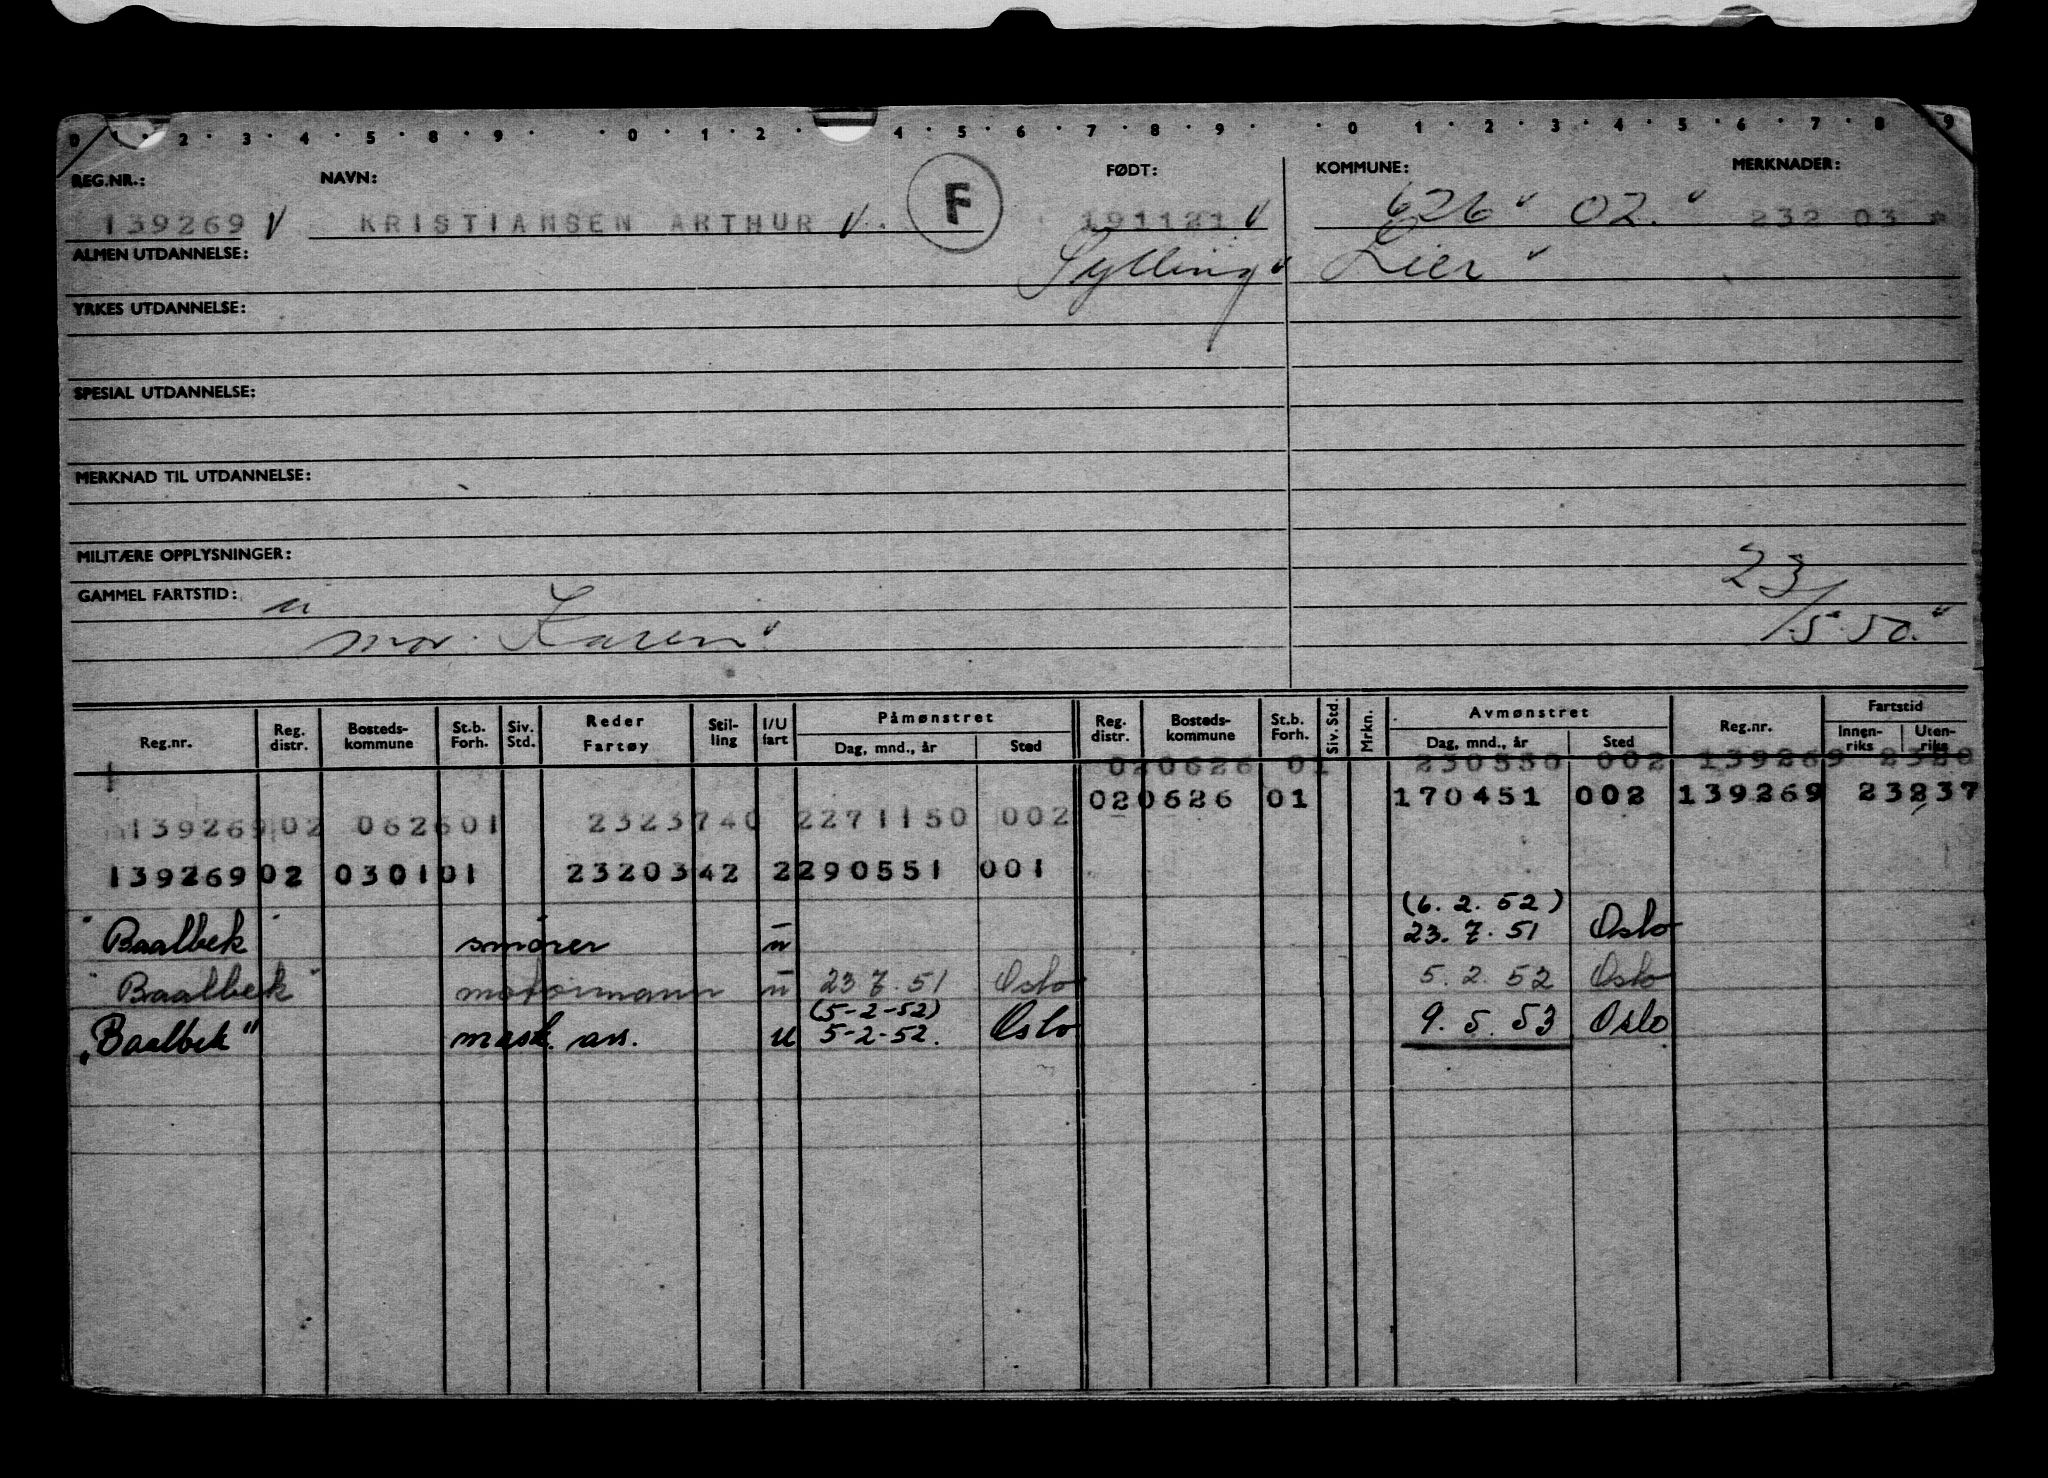 0 · 1 · 2 · 3 · 4 · 5 · 8 · 9 · · 0 · 1 · 2 · 4 · 5 · 6 · 7 · 8 · 9 · · 0 · 1 · 2 · 3 · 4 · 5 · 6 · 7 · 8 · 9
REG.NR.: NAVN: F FØDT: KOMMUNE: MERKNADER:
139269 KRISTIANSEN ARTHUR 191121 626 02. 232 03
ALMEN UTDANNELSE: Sylling Lier
YRKES UTDANNELSE:
SPESIAL UTDANNELSE:
MERKNAD TIL UTDANNELSE:
MILITÆRE OPPLYSNINGER:
GAMMEL FARTSTID: 23/5.50.
mor. Karen
Reg.nr. Reg. distr. Bosteds-kommune St.b. Forh. Siv. Std. Reder Fartøy Stil-ling I/U fart Påmønstret Dag, mnd., år Sted Reg. distr. Bosteds-kommune St.b. Forh. Siv. Std. Mrkn. Avmønstret Dag, mnd., år Sted Reg.nr. Fartstid Innen-riks Uten-riks
020626 01 230550 002 139269 2320
020626 01 170451 002 139269 23237
139269 02 062601 2323740 2271150 002
139269 02 030101 2320342 2290551 001
(6. 2. 52)
"Baalbek" smører u 23. 7. 51 Oslo
"Baalbek" motormann u 23 7. 51 Oslo 5. 2. 52 Oslo
(5-2-52)
"Baalbek" mask. ass. u 5-2-52. Oslo 9. 5. 53 Oslo